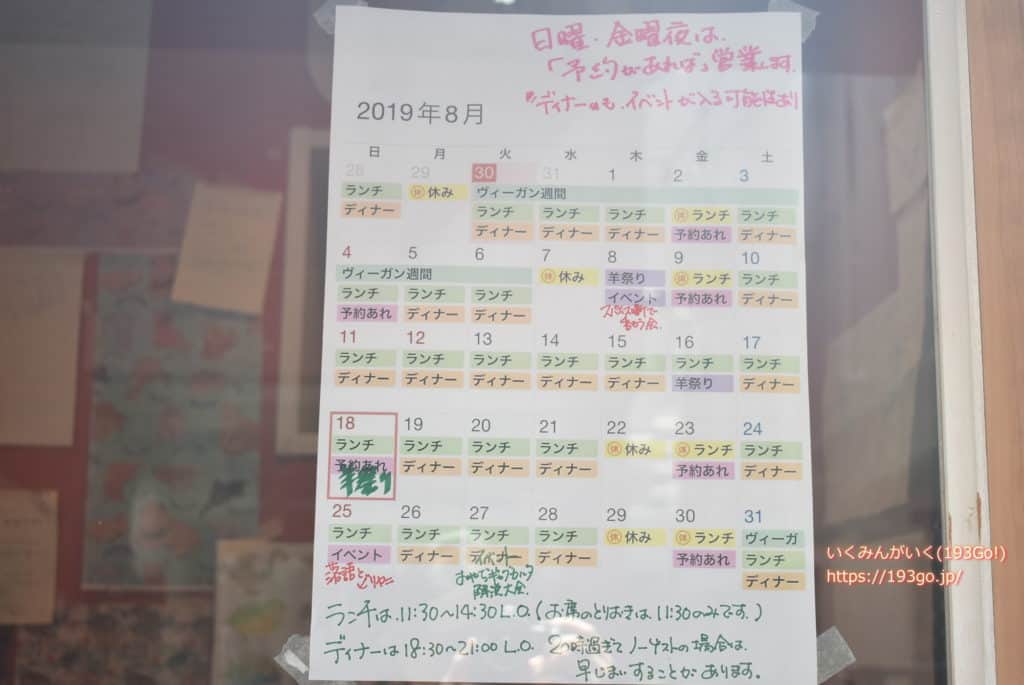 日曜・金曜夜は、
「予約があれば」営業します。
ディナーにも、イベントが入る可能性あり
2019年8月
日 月 火 水 木 金 土
28 29 30 31 1 2 3
ランチ ㊡休み ヴィーガン週間
ディナー ランチ ランチ ランチ ㊡ランチ ランチ
ディナー ディナー ディナー 予約あれ ディナー
4 5 6 7 8 9 10
ヴィーガン週間 ㊡休み 羊祭り ㊡ランチ ランチ
ランチ ランチ ランチ イベント 予約あれ ディナー
予約あれ ディナー ディナー
11 12 13 14 15 16 17
ランチ ランチ ランチ ランチ ランチ ランチ ランチ
ディナー ディナー ディナー ディナー ディナー 羊祭り ディナー
18 19 20 21 22 23 24
ランチ ランチ ランチ ランチ ㊡休み ㊡ランチ ランチ
予約あれ ディナー ディナー ディナー 予約あれ ディナー
羊祭り
25 26 27 28 29 30 31
ランチ ランチ ランチ ランチ ㊡休み ㊡ランチ ヴィーガ
イベント ディナー ディナー 予約あれ ランチ
落語と ディナー
ランチは、11:30〜14:30 L.O.(お席のとりおきは、11:30のみです。)
ディナーは18:30〜21:00 L.O. 20時過ぎてノーゲストの場合は、
早じまいすることがあります。
いくみんがいく(193Go!)
https://193go.jp/